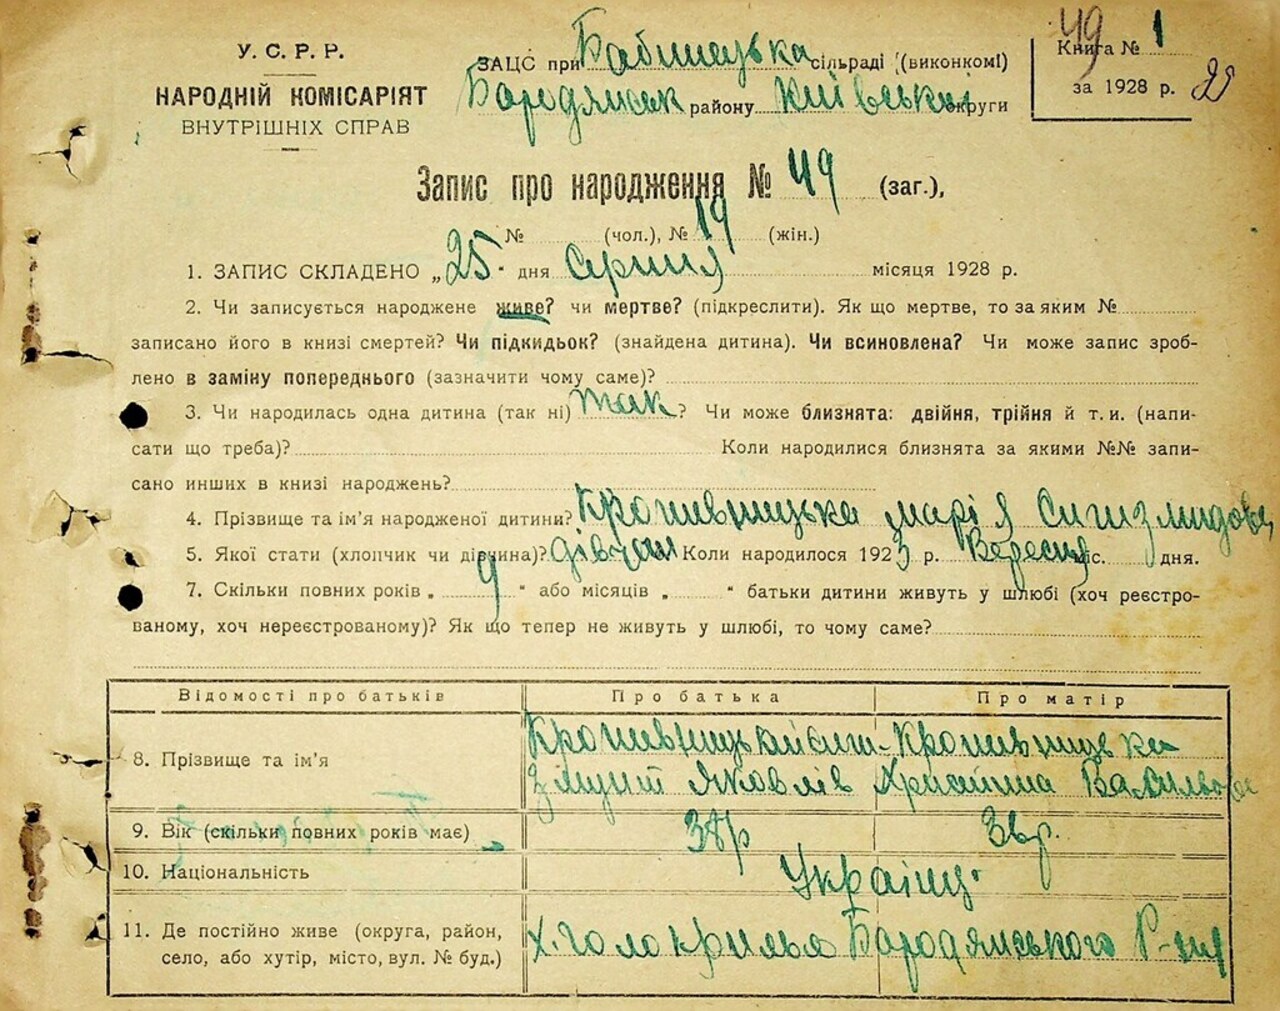 У. С. Р. Р.
НАРОДНІЙ КОМІСАРІЯТ
ВНУТРІШНІХ СПРАВ
ЗАЦС при Бабинецька сільраді (виконкомі)
Бародянськ району Київської округи
49
Книга № 1
за 1928 р.
Запис про народження № 49 (заг.),
№ (чол.), № 19 (жін.)
1. ЗАПИС СКЛАДЕНО „25“ дня Серпня місяця 1928 р.
2. Чи записується народжене живе? чи мертве? (підкреслити). Як що мертве, то за яким №
записано його в книзі смертей? Чи підкидьок? (знайдена дитина). Чи всиновлена? Чи може запис зроб-
лено в заміну попереднього (зазначити чому саме)?
3. Чи народилась одна дитина (так ні) так? Чи може близнята: двійня, трійня й т. и. (напи-
сати що треба)? Коли народилися близнята за якими №№ запи-
сано инших в книзі народжень?
4. Прізвище та ім'я народженої дитини? Кропивницька марія Сигизмундов
5. Якої стати (хлопчик чи дівчина)? Коли народилося 1923 р. Вересня міс. дня.
7. Скільки повних років „ 9 “ або місяців „ “ батьки дитини живуть у шлюбі (хоч реєстро-
ваному, хоч нереєстрованому)? Як що тепер не живуть у шлюбі, то чому саме?
Відомості про батьків Про батька Про матір
8. Прізвище та ім'я Кропивницький Сиги- Кропивницька
змунт Яковлів Христина Васильов
9. Вік (скільки повних років має)
10. Національність Українці
11. Де постійно живе (округа, район,
село, або хутір, місто, вул. № буд.)
х. Голокрилья Бародянського Р-ну